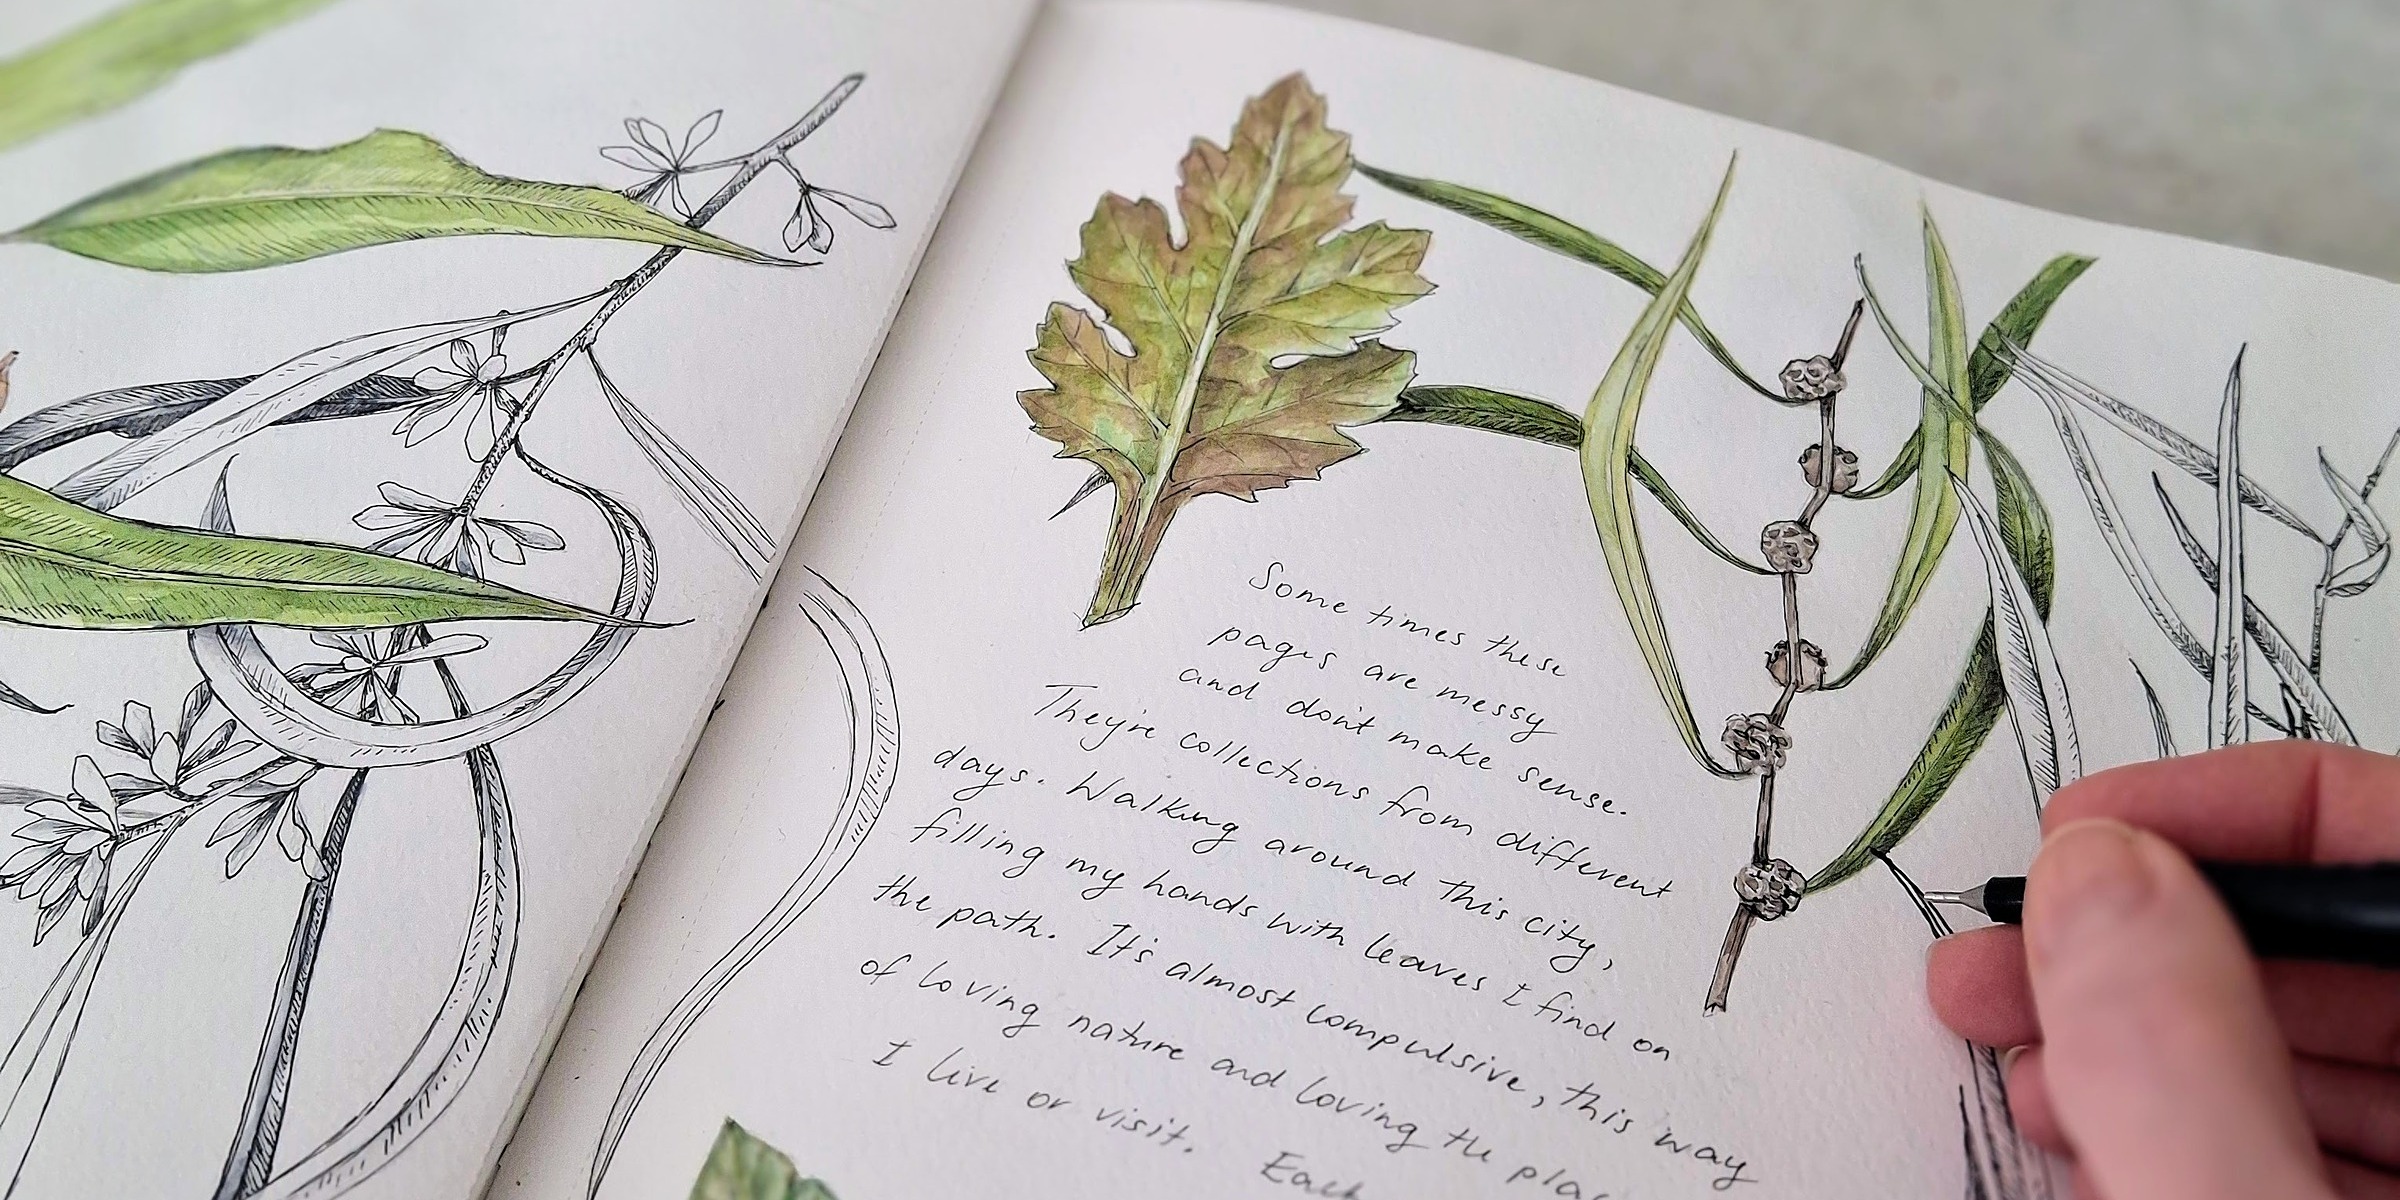 Some times these
pages are messy
and don't make sense.
They're collections from different
days. Walking around this city,
filling my hands with leaves I find on
the path. It's almost compulsive, this way
of loving nature and loving the plac
I live or visit. Each